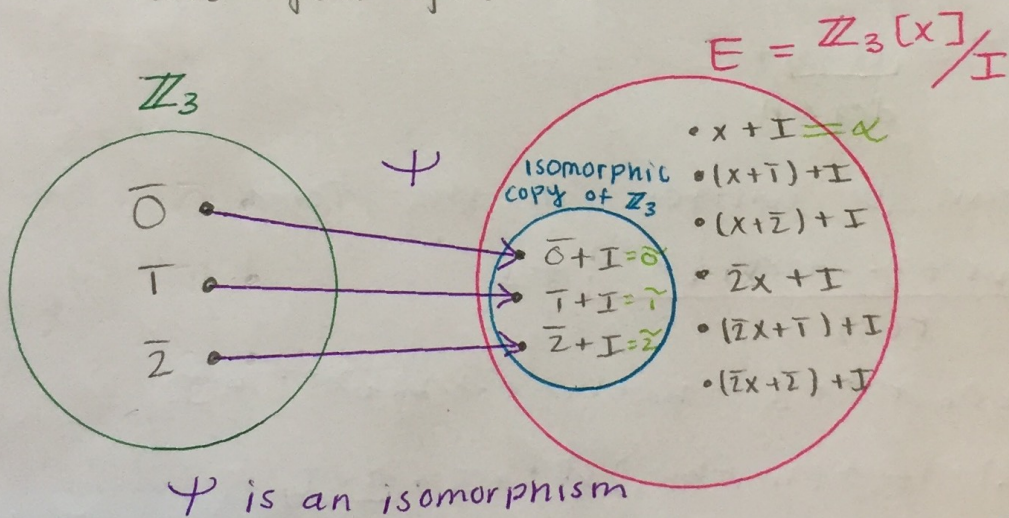 E = ℤ₃[x]/I
ℤ₃
ψ
0̅
1̅
2̅
Isomorphic
copy of ℤ₃
0̅ + I = 0̃
1̅ + I = 1̃
2̅ + I = 2̃
• x + I = α
• (x + 1̅) + I
• (x + 2̅) + I
• 2̅x + I
• (2̅x + 1̅) + I
• (2̅x + 2̅) + I
ψ is an isomorphism